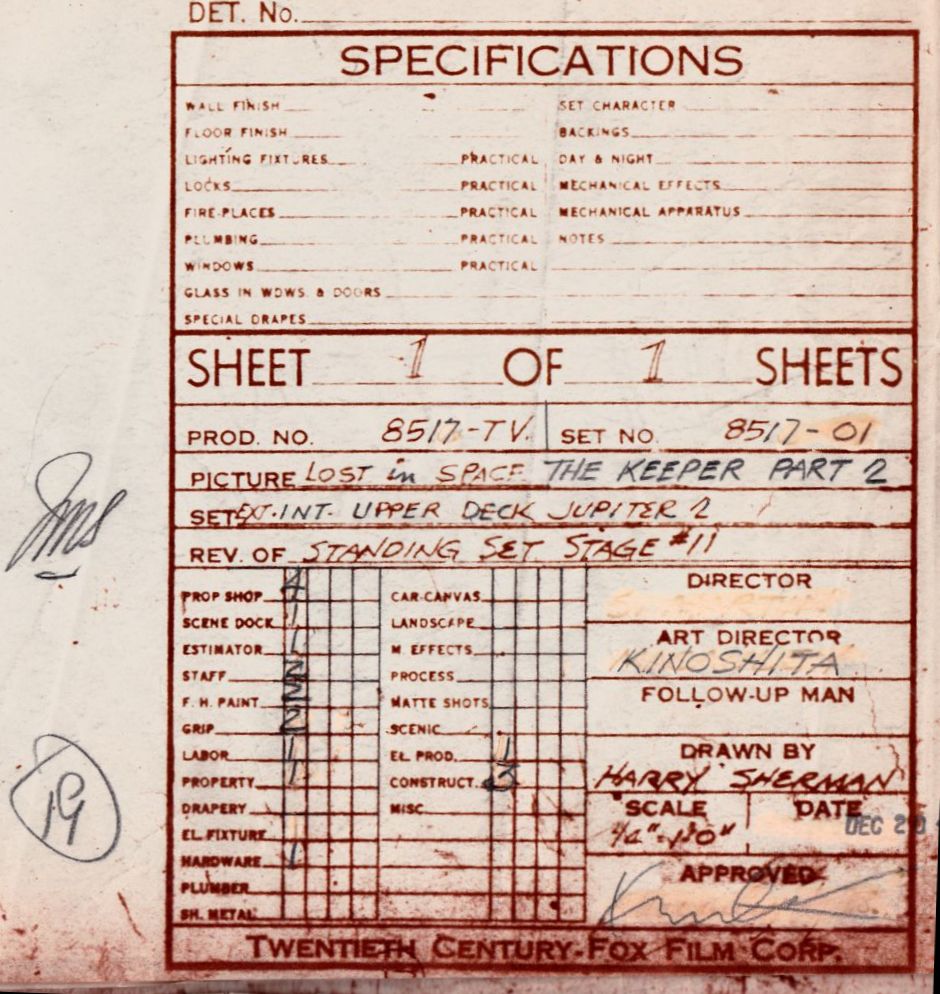 DET. NO.
SPECIFICATIONS
WALL FINISH SET CHARACTER
FLOOR FINISH BACKINGS
LIGHTING FIXTURES PRACTICAL DAY & NIGHT
LOCKS PRACTICAL MECHANICAL EFFECTS
FIRE-PLACES PRACTICAL MECHANICAL APPARATUS
PLUMBING PRACTICAL NOTES
WINDOWS PRACTICAL
GLASS IN WDWS. & DOORS
SPECIAL DRAPES
SHEET 1 OF 1 SHEETS
PROD. NO. 8517-TV. SET NO. 8517-01
PICTURE LOST in SPACE THE KEEPER PART 2
SET EXT. INT. UPPER DECK JUPITER 2
REV. OF STANDING SET STAGE #11
PROP SHOP 4 CAR-CANVAS DIRECTOR
SCENE DOCK 1 LANDSCAPE
ESTIMATOR 1 M EFFECTS ART DIRECTOR
KINOSHITA
STAFF 2 PROCESS
F. H. PAINT 2 MATTE SHOTS FOLLOW-UP MAN
GRIP 2 SCENIC
LABOR 1 EL. PROD. 1 DRAWN BY
PROPERTY 1 CONSTRUCT. 3 HARRY SHERMAN
DRAPERY MISC SCALE DATE
EL. FIXTURE 1/4"-1'-0" DEC 20
HARDWARE 1 APPROVED
PLUMBER
SH. METAL
TWENTIETH CENTURY-FOX FILM CORP.
19